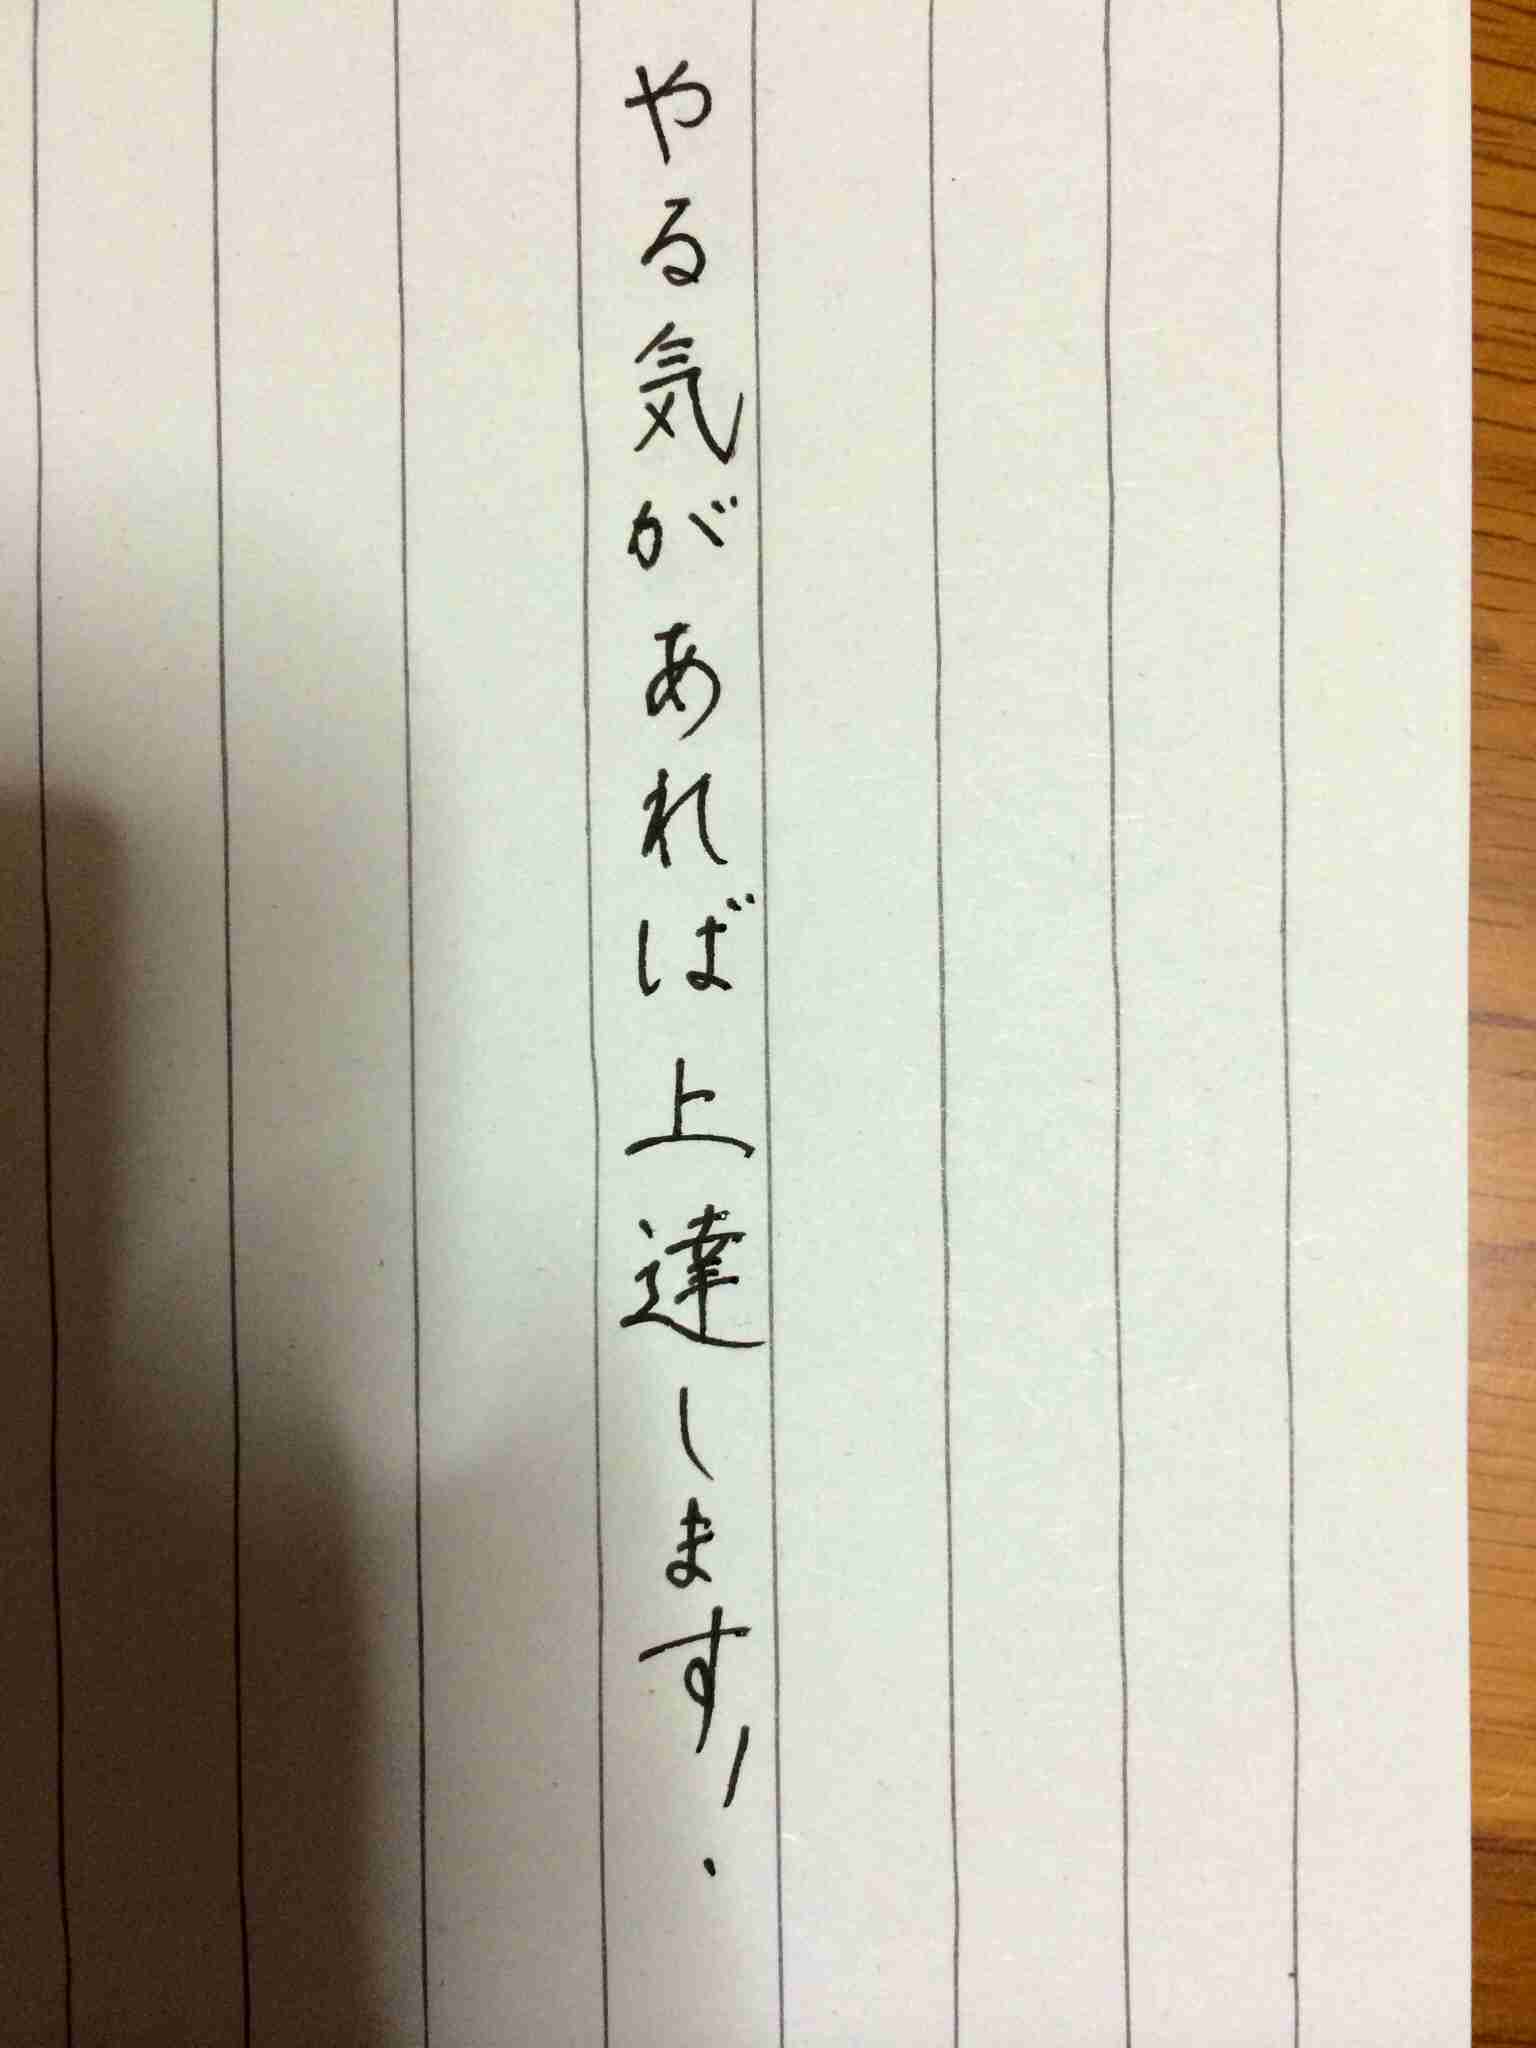 やる気があれば上達します！